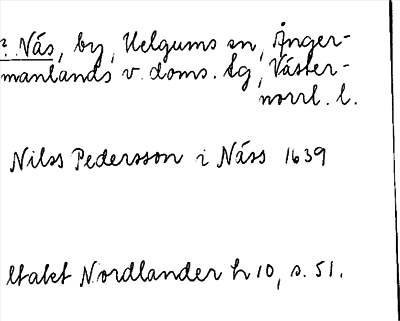 2. Näs, by, Helgums sn, Ånger-
manlands v. doms. tg, Väster-
norrl. l.
Nilss Pedersson i Näss 1639
Utakt Nordlander h 10, s. 51.